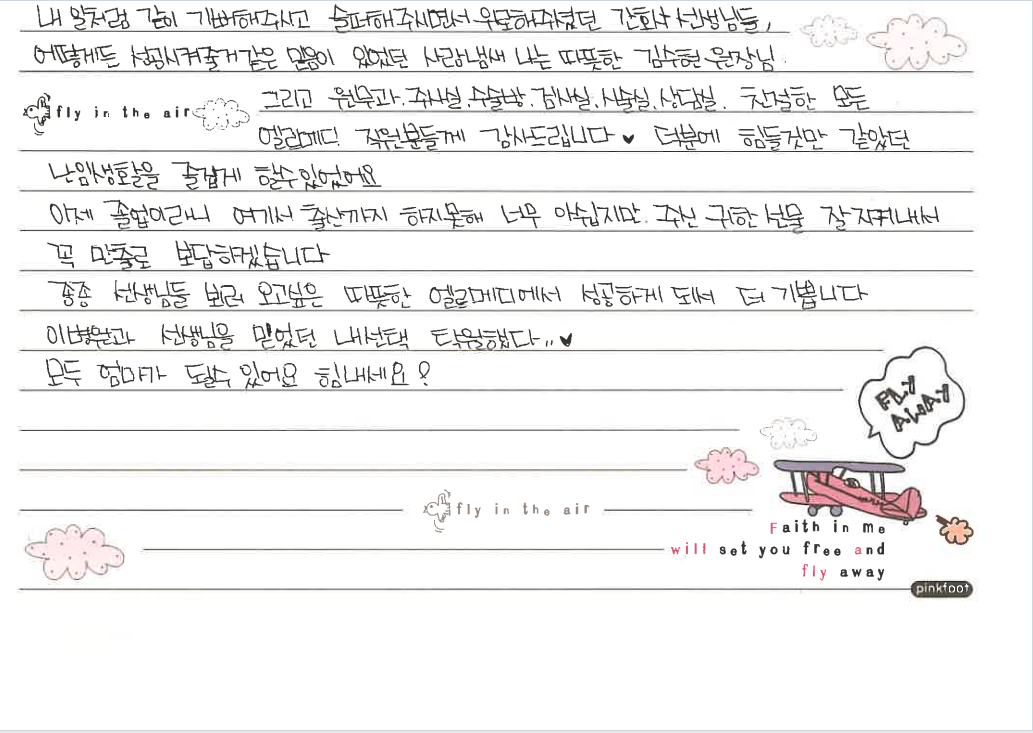 내 일처럼 같이 기뻐해주시고 슬퍼해주시면서 위로해주셨던 간호사 선생님들,
어떻게든 성공시켜줄거같은 믿음이 있었던 사람냄새 나는 따뜻한 김수현 원장님.
fly in the air
그리고 원무과.주사실.수술방.검사실.시술실.상담실. 친절한 모든
엘라메디 직원분들께 감사드립니다♥ 덕분에 힘들것만 같았던
난임생활을 즐겁게 할수있었어요
이제 졸업이라니 여기서 출산까지 하지못해 너무 아쉽지만. 주신 귀한 선물 잘지켜내서
꼭 만출로 보답하겠습니다
종종 선생님들 보러 오고싶은 따뜻한 엘라메디에서 성공하게 되서 더 기쁩니다
이병원과 선생님을 믿었던 내선택 탁월했다..♥
모두 엄마가 될수 있어요 힘내세요?
FLY
AWAY
fly in the air
Faith in me
will set you free and
fly away
pinkfoot